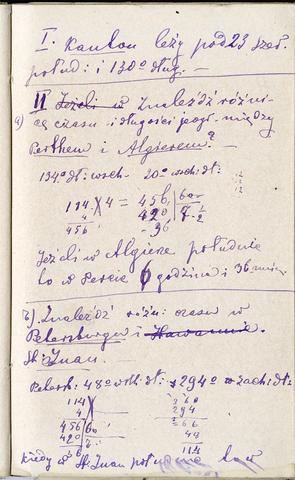 I. Kanton leży pod 23 szer.
połud: i 130° dług. —
II Jeżeli w Znaleźdź różni-
a) cę czasu i długości jeogr. między
Perthem i Algierem?
134° dł: wsch. 20° wsch: dł:
114 X 4 = 456 | 60
4 420 | 7. 1/2
456 36
Jeżeli w Algierze południe
to w Percie 6 godzina i 36 min.
b) Znaleźdź różn: czasu w
Petersburgu i Hawannie.
St: Juan.
Petersb: 48° wsch: dł: 294° zach: dł:
114 360
4 294
456 | 60 66
420 | 7. 48
36 114
kiedy w St: Juan południe